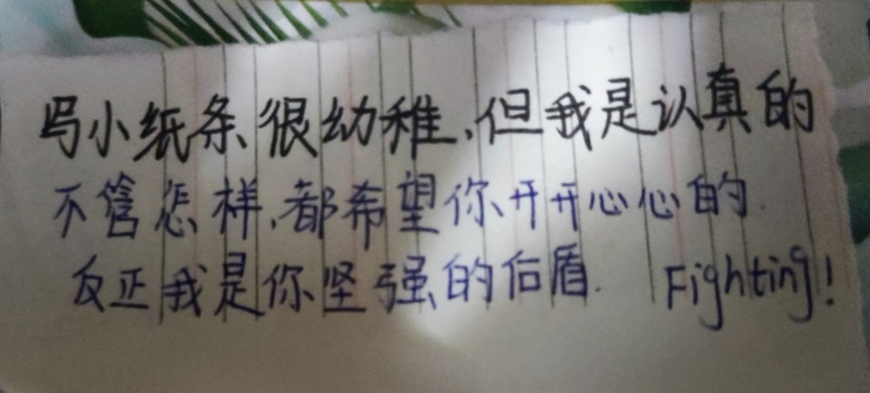 写小纸条很幼稚,但我是认真的
不管怎样,都希望你开开心心的.
反正我是你坚强的后盾. Fighting!